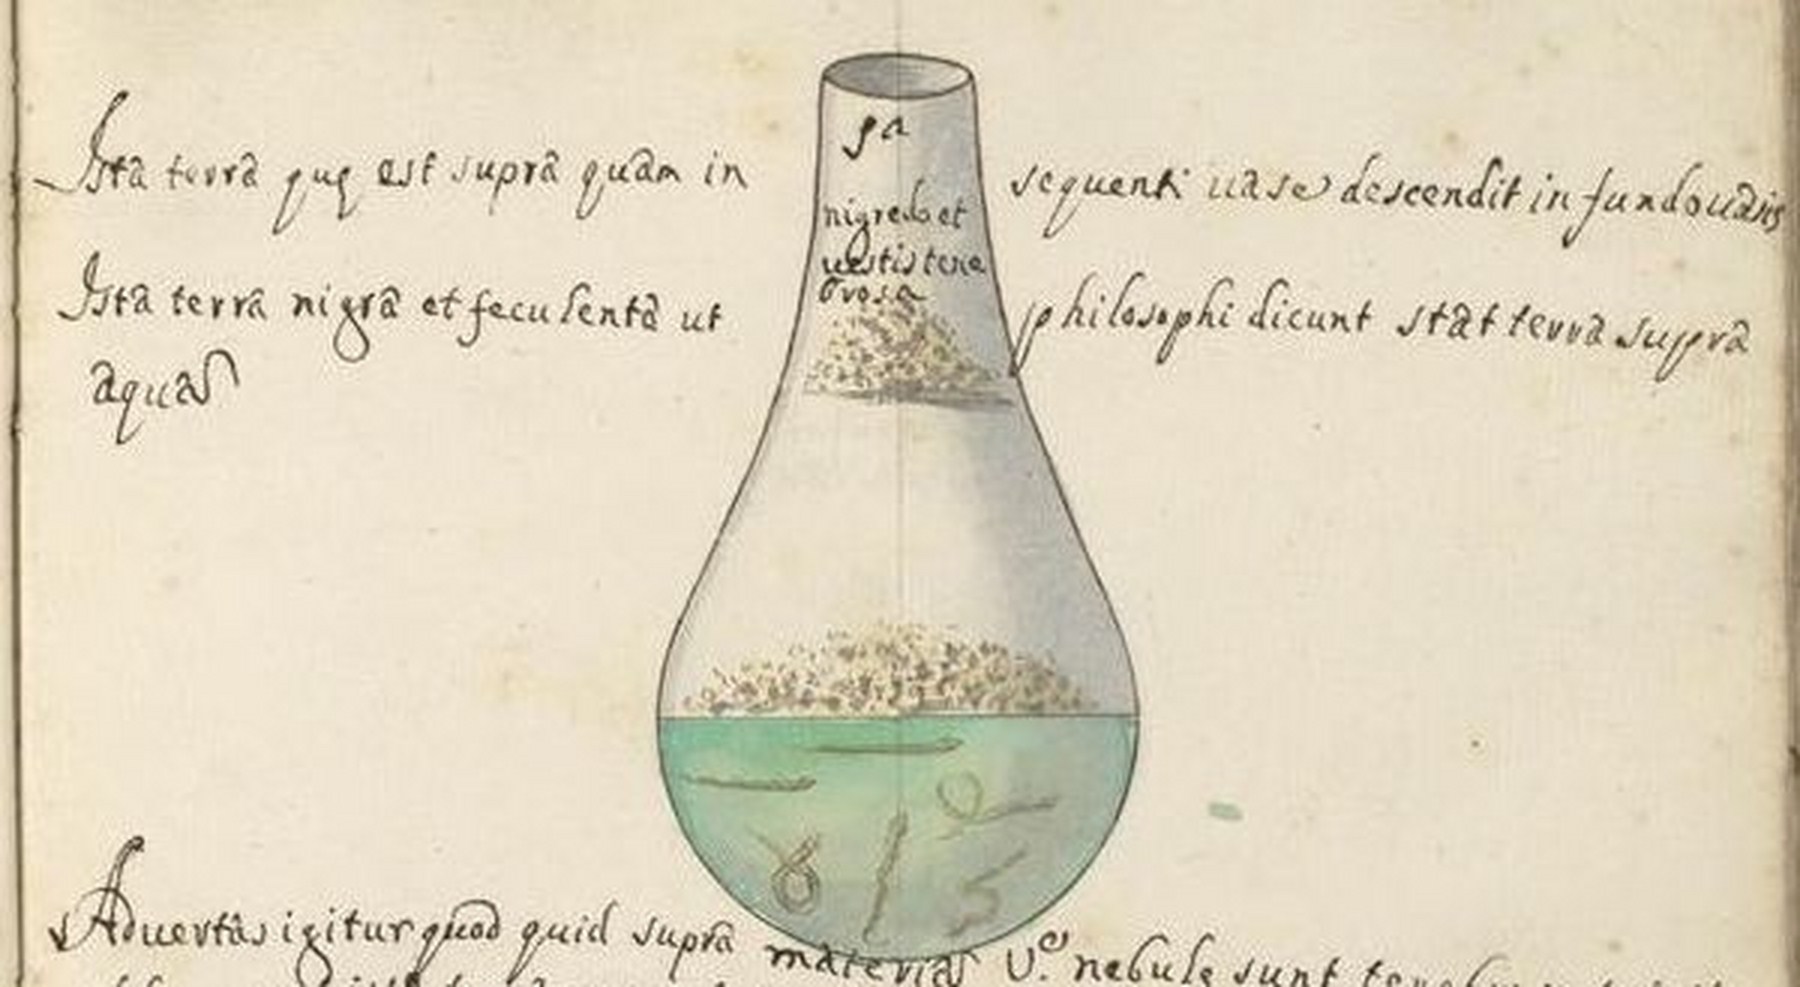 5a
Ista terra quę est supra quam in sequenti uase descendit in fundo uasis
nigredo et
uestis tene
brosa
Ista terra nigra et feculenta ut philosophi dicunt stat terra supra
aquas
Aduertas igitur quod quid supra materias nebulę sunt